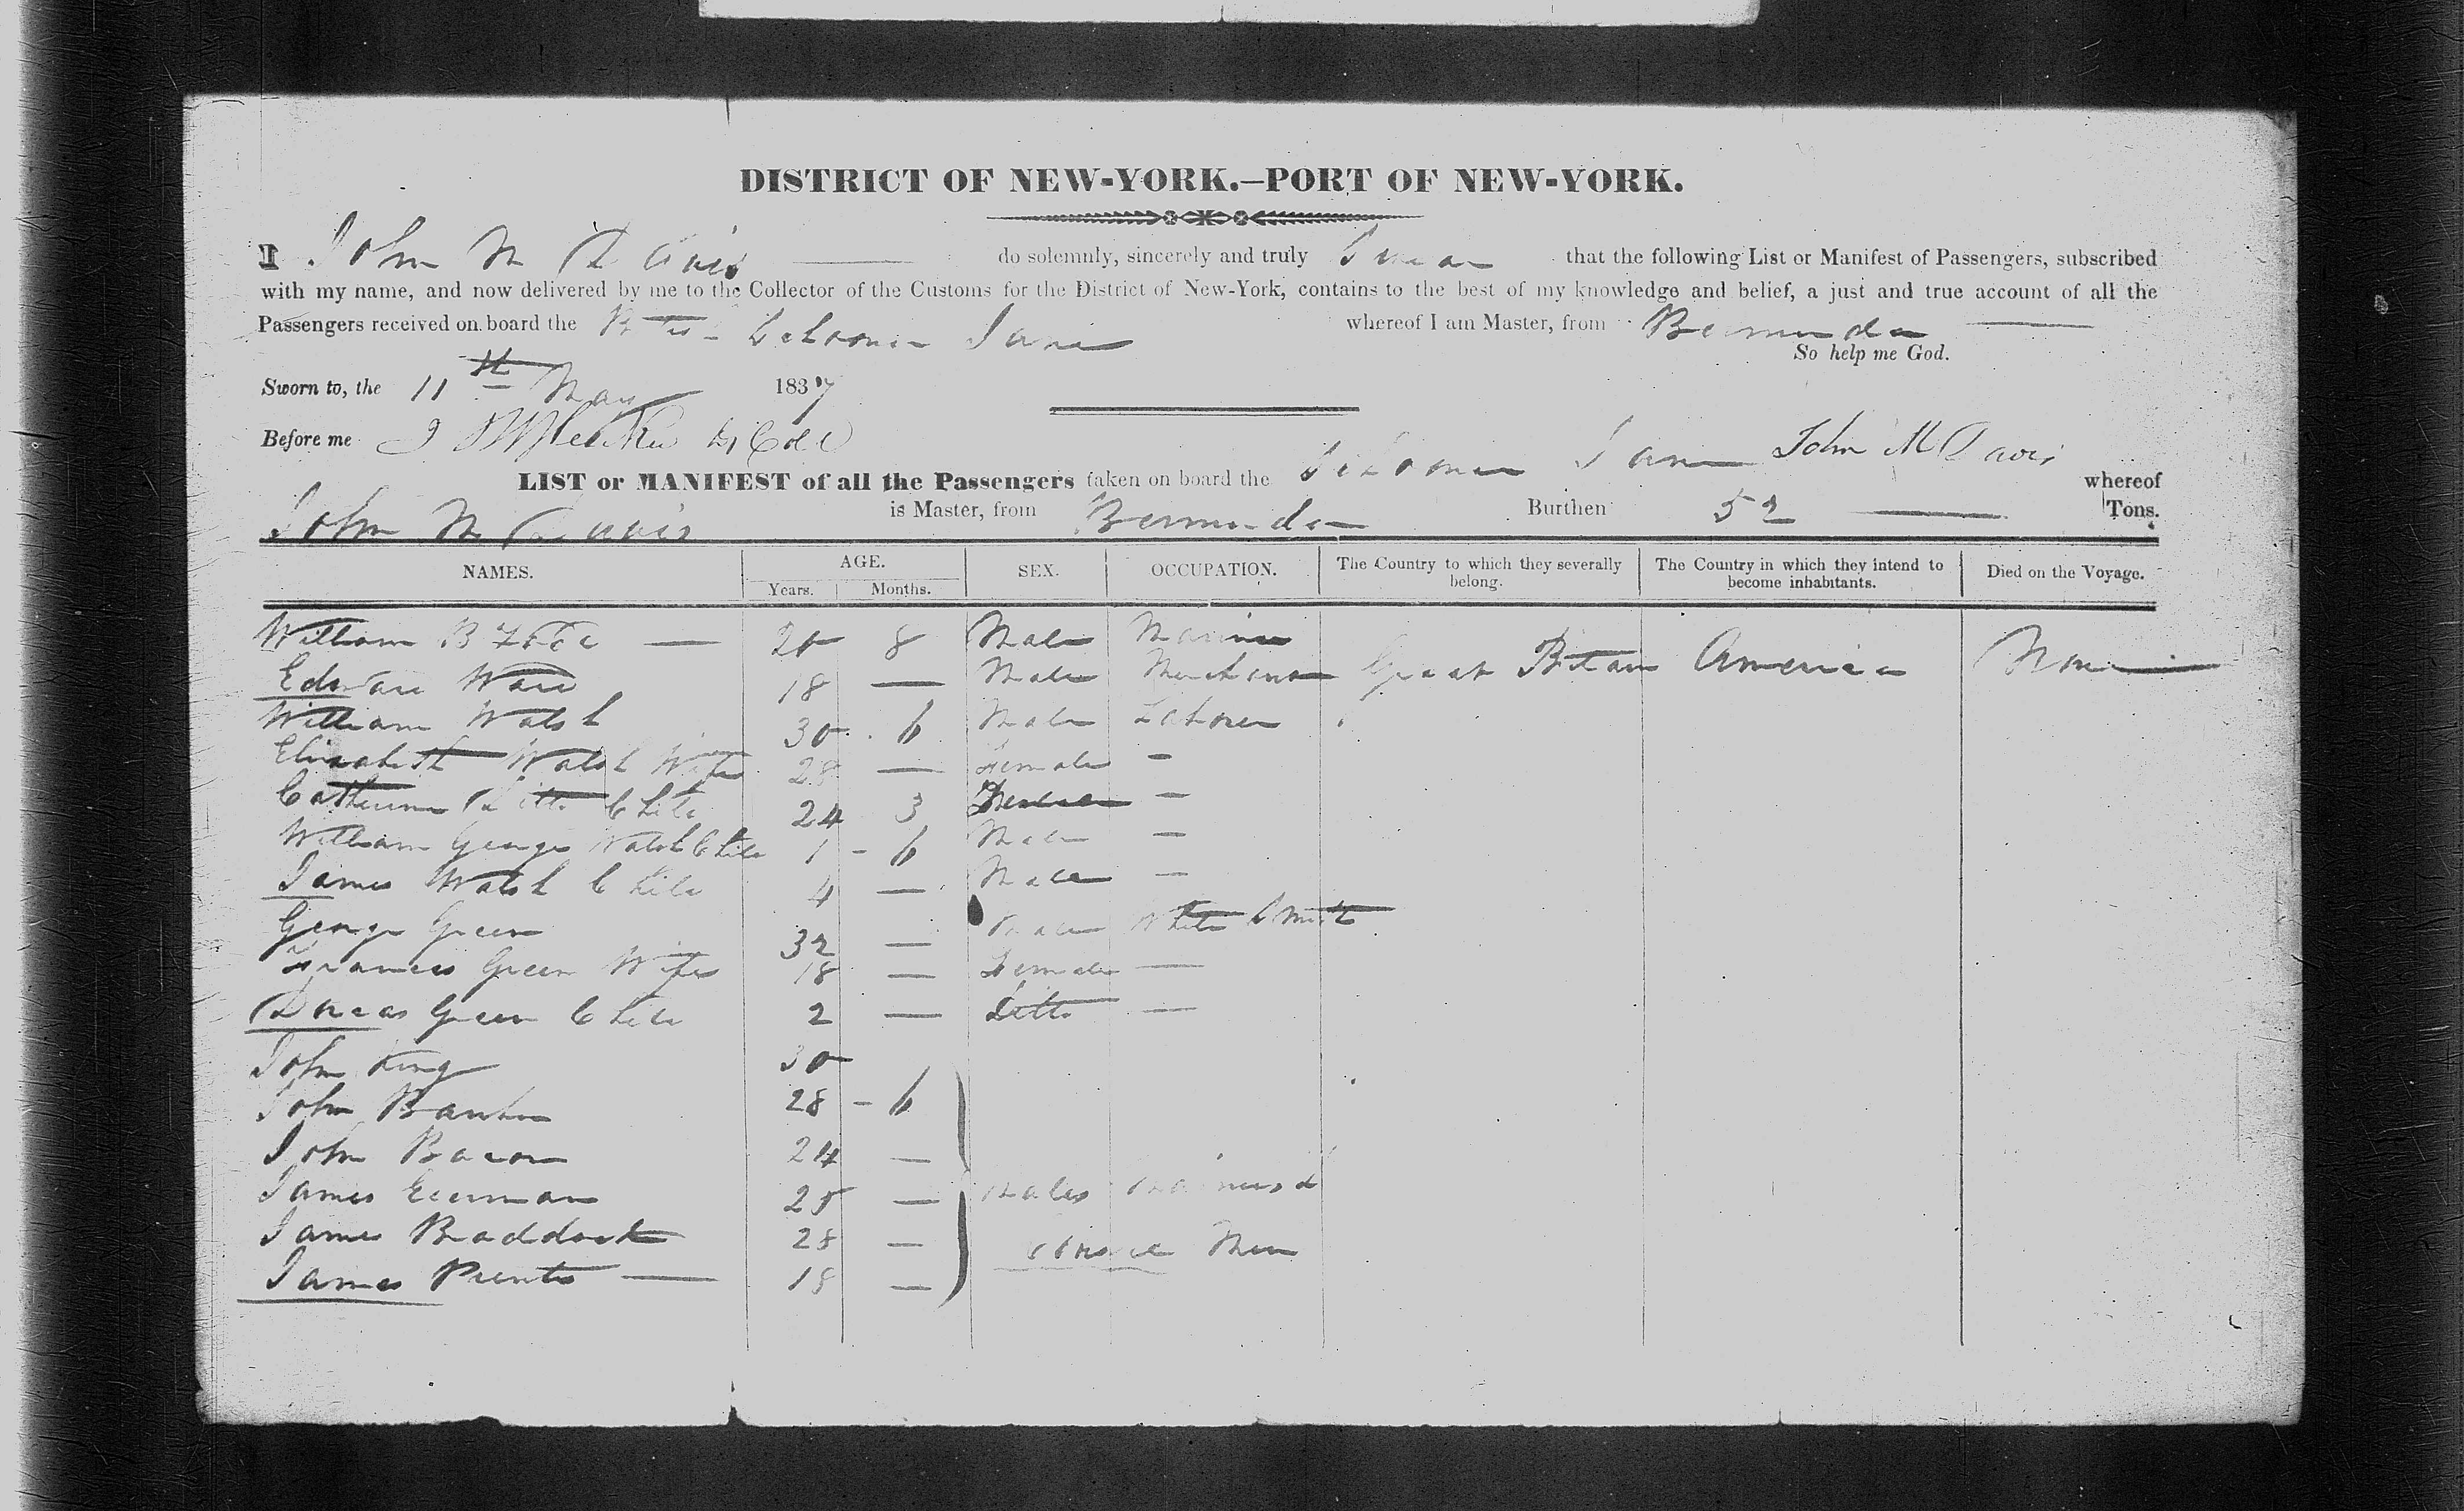 DISTRICT OF NEW-YORK.—PORT OF NEW-YORK.
I John M Davis do solemnly, sincerely and truly Swear that the following List or Manifest of Passengers, subscribed
with my name, and now delivered by me to the Collector of the Customs for the District of New-York, contains to the best of my knowledge and belief, a just and true account of all the
Passengers received on board the Schooner Jane whereof I am Master, from Bermuda
So help me God.
Sworn to, the 11th May 1837
Before me
John M Davis
LIST or MANIFEST of all the Passengers taken on board the Schooner Jane whereof
John M Davis is Master, from Bermuda Burthen 52 Tons.
NAMES. AGE. SEX. OCCUPATION. The Country to which they severally belong. The Country in which they intend to become inhabitants. Died on the Voyage.
Years. Months.
William B — 20 8 Male Mariner
Edward Ware 18 — Male Merchant Great Britain America None
William Walsh 30 6 Male Labourer
Elisabeth Walsh Wife 28 — Female —
Catherine Ditto Child 24 3 —
William George Walsh Child 1 - 6 Male —
James Walsh Child 4 — Male —
George Green 32 — Male White Smith
Frances Green Wife 18 — Female —
Dorcas Green Child 2 — Ditto —
John King 30
John 28 - 6
John Bacon 24 —
James 25 — Males Mariners &
James Braddock 28 —
James — 18 — Men